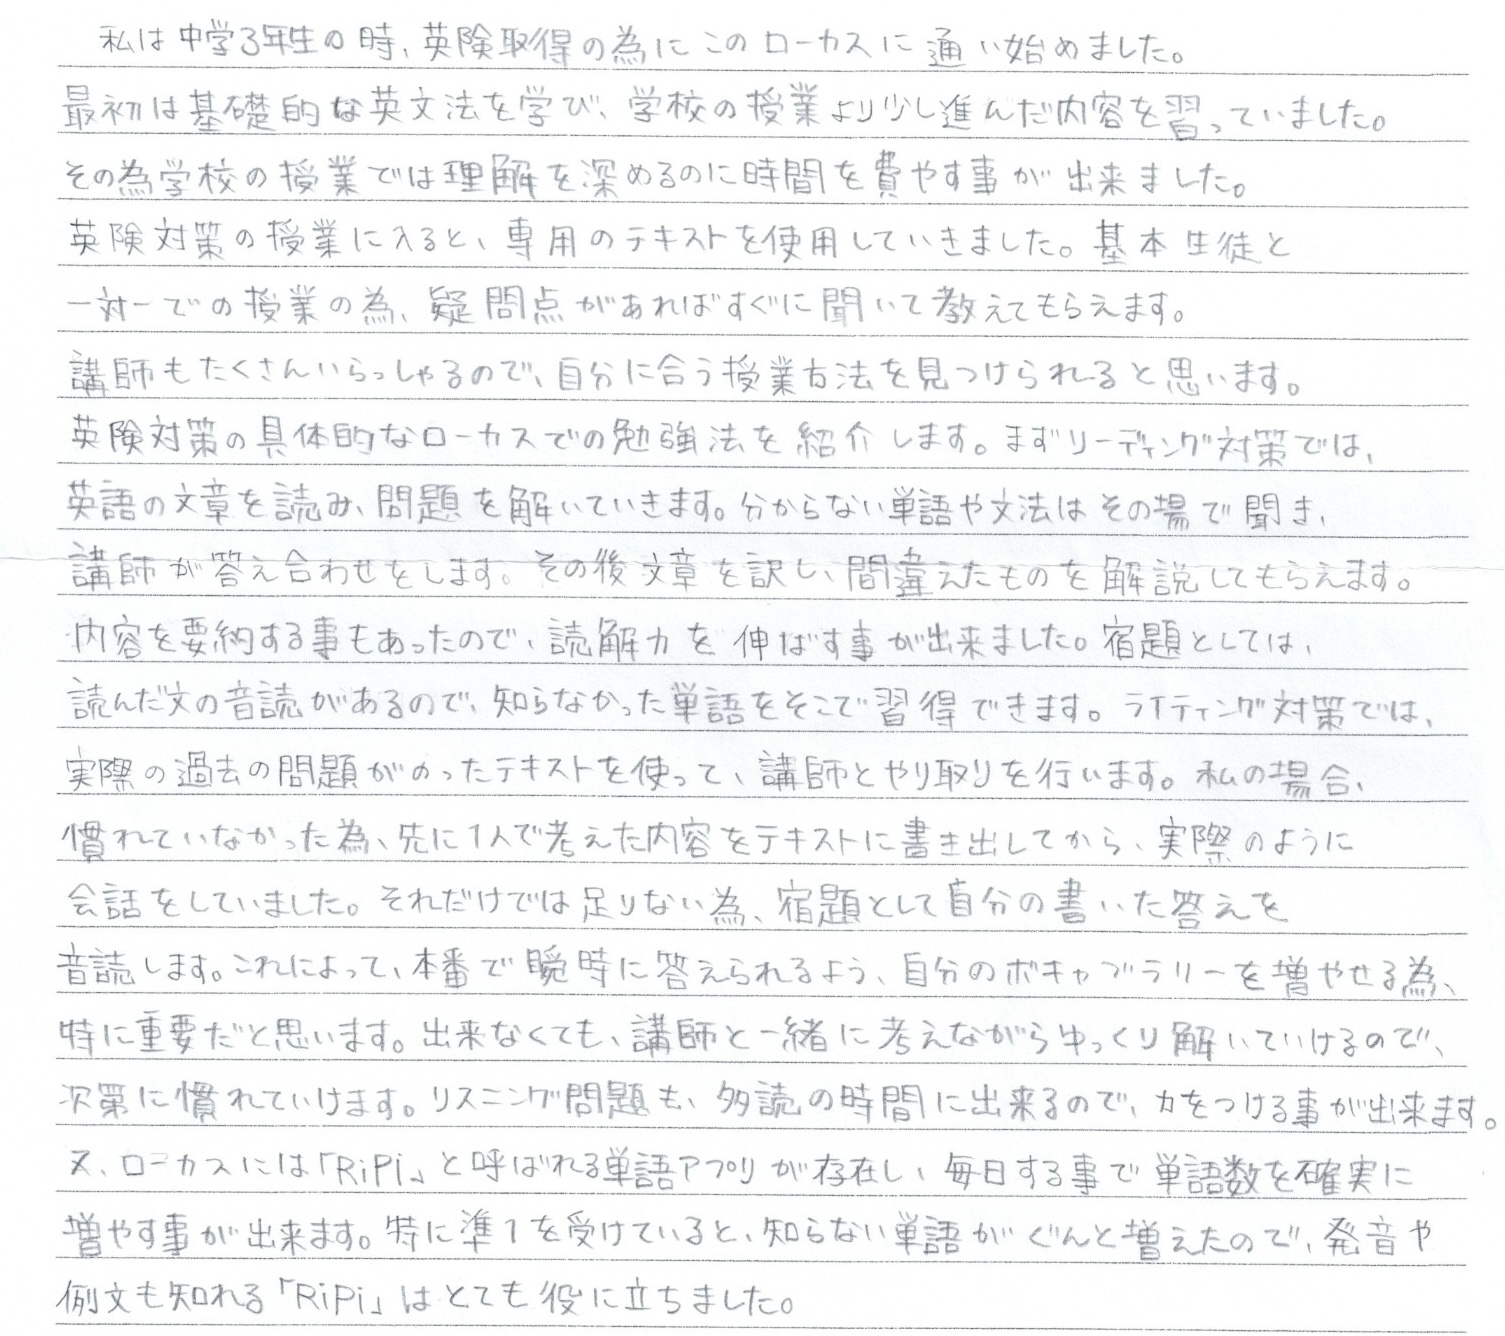 私は中学3年生の時、英険取得の為にこのローカスに通い始めました。
最初は基礎的な英文法を学び、学校の授業より少し進んだ内容を習っていました。
その為学校の授業では理解を深めるのに時間を費やす事が出来ました。
英険対策の授業に入ると、専用のテキストを使用していきました。基本生徒と
一対一での授業の為、疑問点があればすぐに聞いて教えてもらえます。
講師もたくさんいらっしゃるので、自分に合う授業方法を見つけられると思います。
英険対策の具体的なローカスでの勉強法を紹介します。まずリーディング対策では、
英語の文章を読み、問題を解いていきます。分からない単語や文法はその場で聞き、
講師が答え合わせをします。その後文章を訳し、間違えたものを解説してもらえます。
内容を要約する事もあったので、読解力を伸ばす事が出来ました。宿題としては、
読んだ文の音読があるので、知らなかった単語をそこで習得できます。ライティング対策では、
実際の過去の問題がのったテキストを使って、講師とやり取りを行います。私の場合、
慣れていなかった為、先に1人で考えた内容をテキストに書き出してから、実際のように
会話をしていました。それだけでは足りない為、宿題として自分の書いた答えを
音読します。これによって、本番で瞬時に答えられるよう、自分のボキャブラリーを増やせる為、
特に重要だと思います。出来なくても、講師と一緒に考えながらゆっくり解いていけるので、
次第に慣れていけます。リスニング問題も、多読の時間に出来るので、力をつける事が出来ます。
又、ローカスには「RiPi」と呼ばれる単語アプリが存在し、毎日する事で単語数を確実に
増やす事が出来ます。特に準1を受けていると、知らない単語がぐんと増えたので、発音や
例文も知れる「RiPi」はとても役に立ちました。